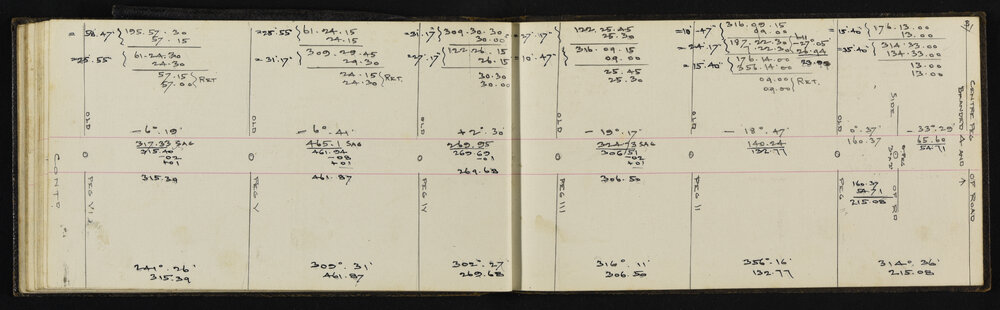 = 58.47' { 195.57.30
57.15
= 25.55" { 61.24.30
24.30
57.15 } RET
57.00
OLD
- 6°. 19'
317.33 SAG
315.40
-02
+01
315.39
CONTD
PEG VI
241°. 26'
315.39
= 25.55 { 61.24.15
24.15
= 31.17' { 309.29.45
29.30
24.15 } RET.
24.30
OLD
- 6°. 41'
465.1 SAG
461.94
-08
+01
461.87
PEG V
309°. 31'
461.87
= 31.17 { 309.30.30
30.00
= 27.17 { 122.26.15
26.15
30.30
30.00
OLD
+ 2°. 30
269.95
269.69
-01
269.68
PEG IV
302°. 27'
269.68
= 27°.17' { 122.25.45
25.30
= 10'.47' { 316.09.15
09.00
25.45
25.30
OLD
- 19°. 17'
324.73 SAG
306.51
-02
+01
306.50
PEG III
316°. 11'
306.50
= 10' -47' { 316.09.15
09.00
= 24.17' { 187.22.30
22.30
= 15.40' { 176.14.00
356.14.00
09.00 } RET.
09.00
OLD
- 18°. 47'
140.24
132.77
PEG II
356°. 16'
132.77
= 15.40' { 176.13.00
13.00
= 35.40' { 314.33.00
134.33.00
13.00
13.00
OLD
0°. 37'
160.37
PEG
160.37
54.71
215.08
SIDE
OF RD
- 33°. 29'
65.60
54.71
CENTRE PEG
BRANDED A AND
OF ROAD
314°. 36'
215.08